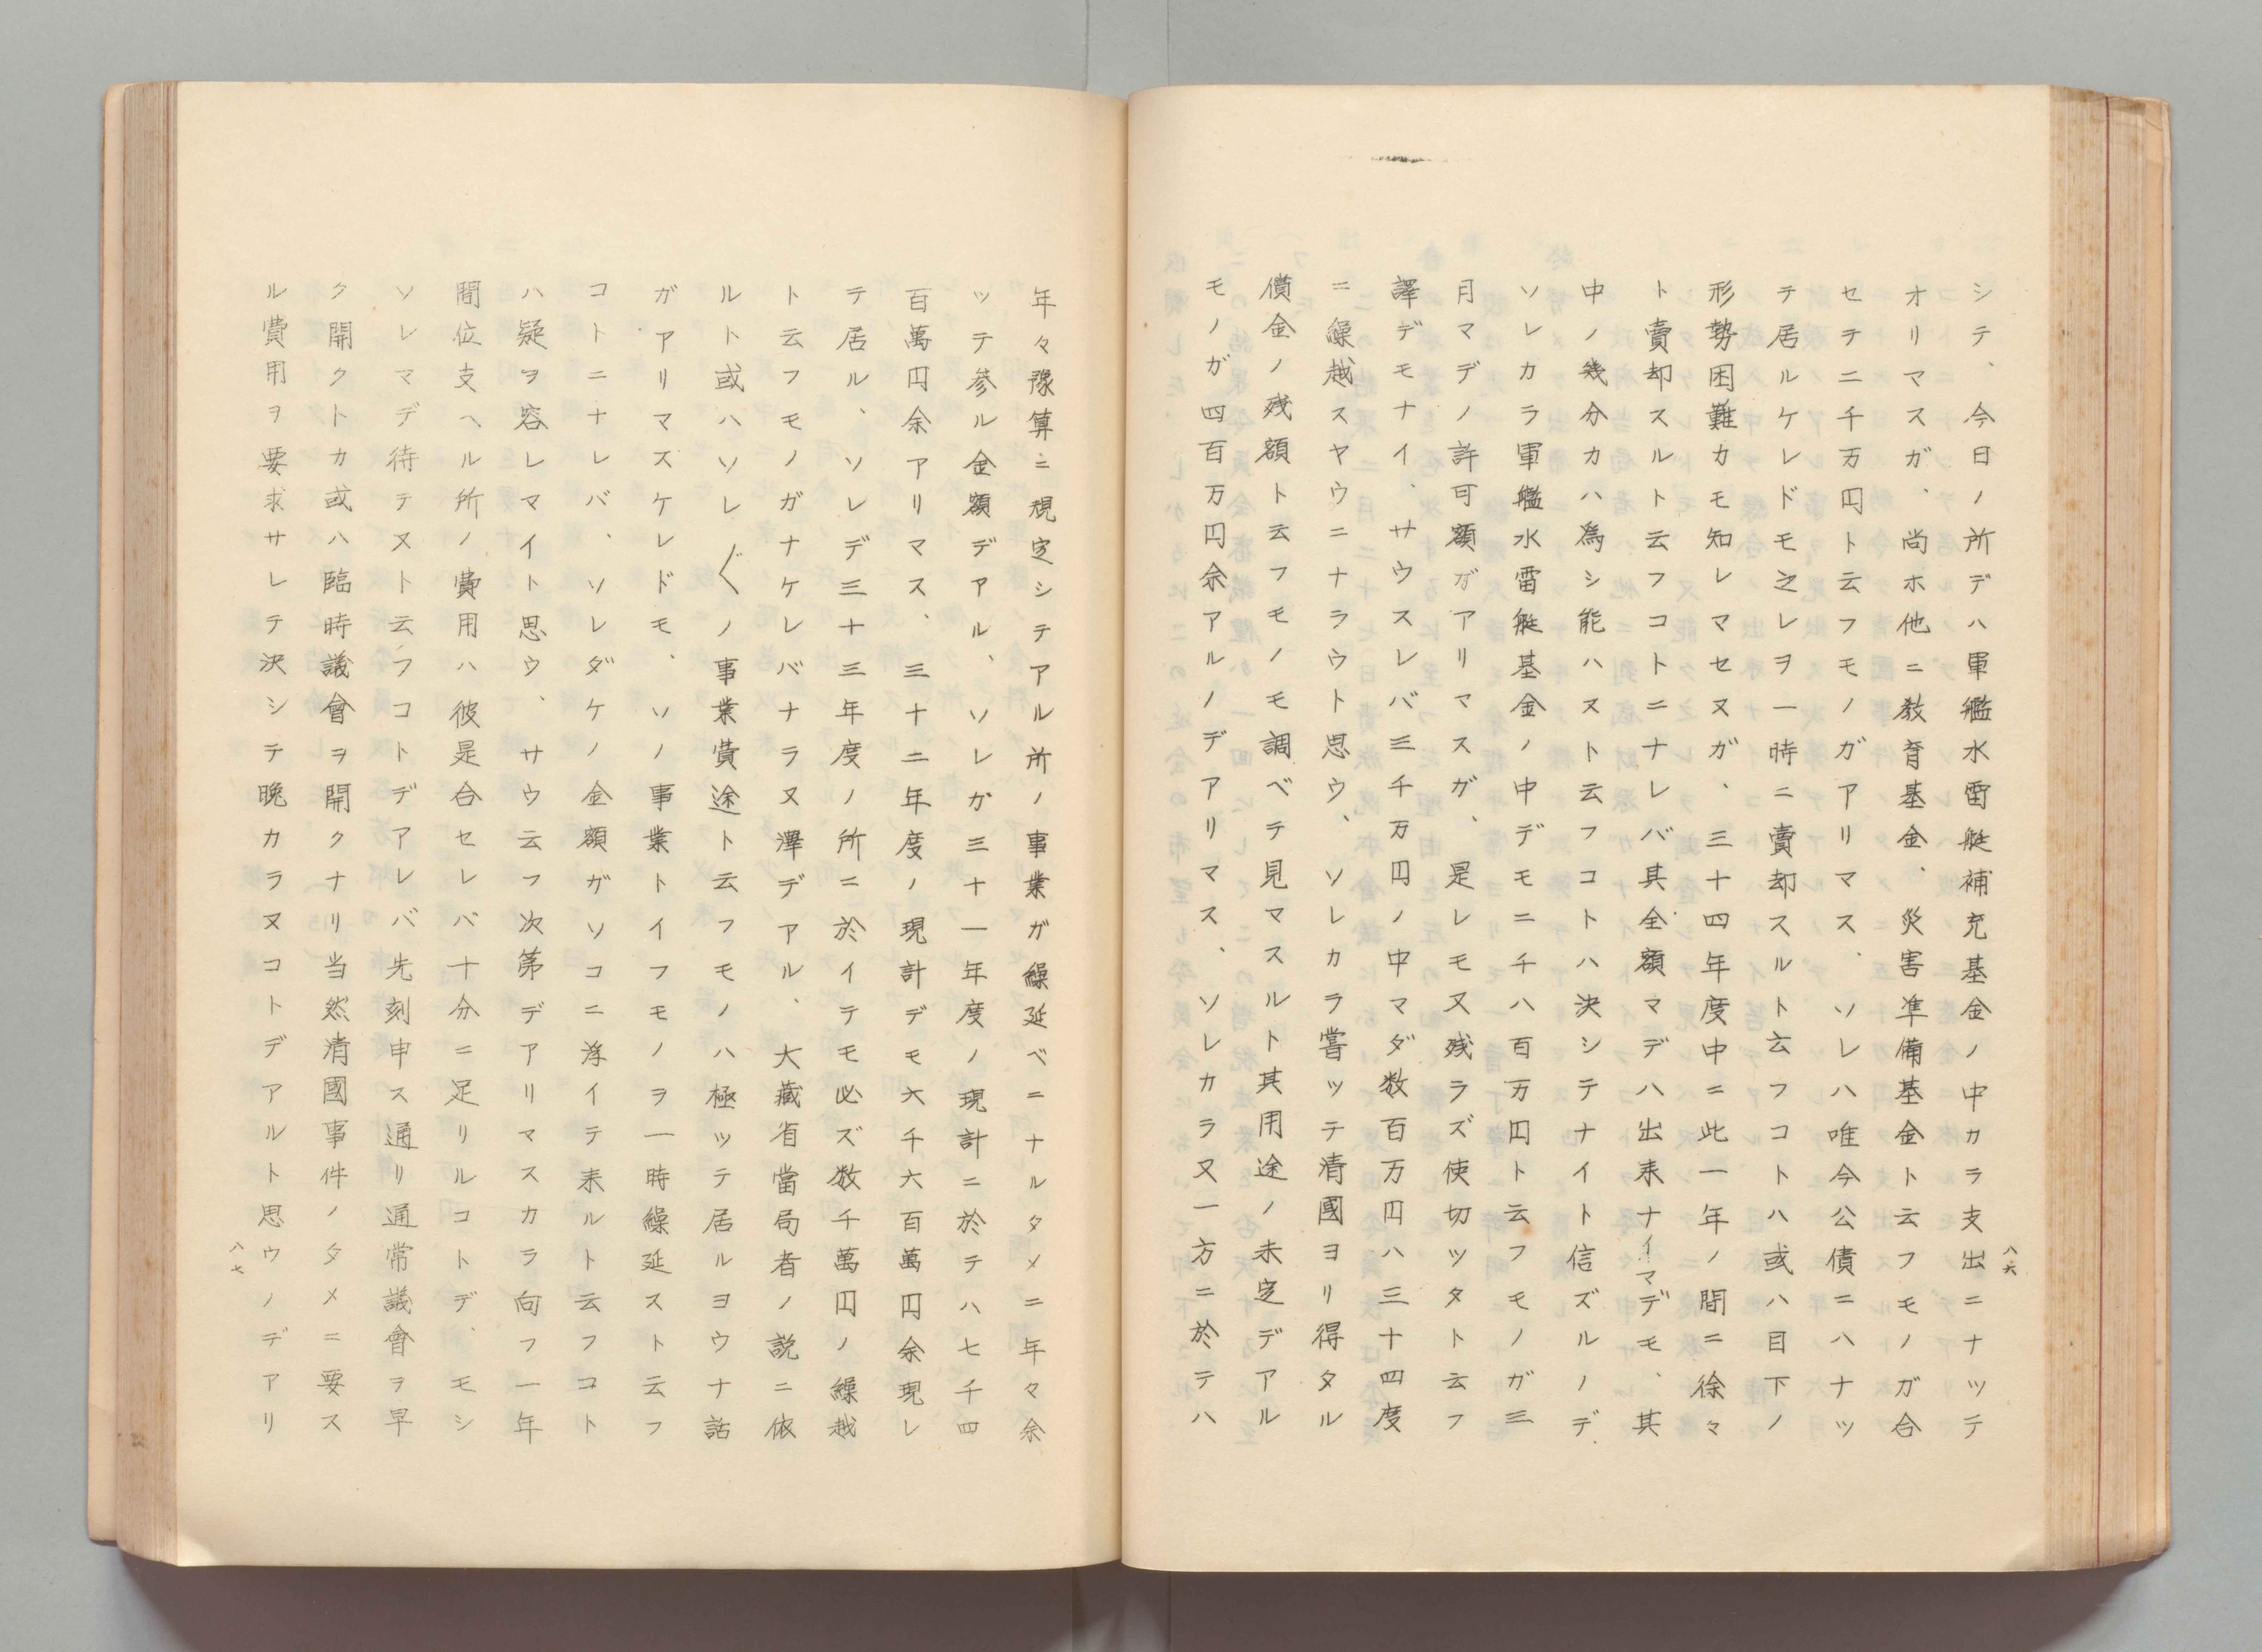 八六
シテ、今日ノ所デハ軍艦水雷艇補充基金ノ中カラ支出ニナツテ
オリマスガ、尚ホ他ニ教育基金、災害準備基金ト云フモノガ合
セテ二千万円ト云フモノガアリマス、ソレハ唯今公債ニハナツ
テ居ルケレドモ之レヲ一時ニ賣却スルト云フコトハ或ハ目下ノ
形勢困難カモ知レマセヌガ、三十四年度中ニ此一年ノ間ニ徐々
ト賣却スルト云フコトニナレバ其全額マデハ出来ナイマデモ、其
中ノ幾分カハ為シ能ハヌト云フコトハ決シテナイト信ズルノデ、
ソレカラ軍艦水雷艇基金ノ中デモ二千八百万円ト云フモノガ三
月マデノ許可額ガアリマスガ、是レモ又残ラズ使切ツタト云フ
譯デモナイ、サウスレバ三千万円ノ中マダ数百万円ハ三十四度
ニ繰越スヤウニナラウト思ウ、ソレカラ嘗ッテ清國ヨリ得タル
償金ノ残額ト云フモノモ調ベテ見マスルト其用途ノ未定デアル
モノガ四百万円余アルノデアリマス、ソレカラ又一方ニ於テハ
年々豫算ニ規定シテアル所ノ事業ガ繰延ベニナルタメニ年々余
ッテ参ル金額デアル、ソレガ三十一年度ノ現計ニ於テハ七千四
百萬円余アリマス、三十二年度ノ現計デモ六千六百萬円余現レ
テ居ル、ソレデ三十三年度ノ所ニ於イテモ必ズ数千萬円ノ繰越
ト云フモノガナケレバナラヌ澤デアル、大藏省當局者ノ説ニ依
ルト或ハソレ〴〵ノ事業費途ト云フモノハ極ッテ居ルヨウナ話
ガアリマスケレドモ、ソノ事業トイフモノヲ一時繰延スト云フ
コトニナレバ、ソレダケノ金額ガソコニ浮イテ来ルト云フコト
ハ疑ヲ容レマイト思ウ、サウ云フ次第デアリマスカラ向フ一年
間位支ヘル所ノ費用ハ彼是合セレバ十分ニ足リルコトデ、モシ
ソレマデ待テヌト云フコトデアレバ先刻申ス通リ通常議會ヲ早
ク開クトカ或ハ臨時議會ヲ開クナリ当然清國事件ノタメニ要ス
ル費用ヲ要求サレテ決シテ晩カラヌコトデアルト思ウノデアリ
八七